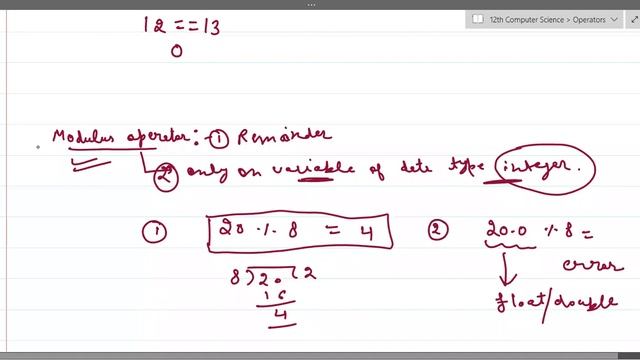 12th Computer Science > Operators
12 == 13
0
Modulus operator :- ① Remainder
② only on variable of data type integer.
① 20 % 8 = 4
② 20.0 % 8 =
error
8)20(2
16
4
float/double